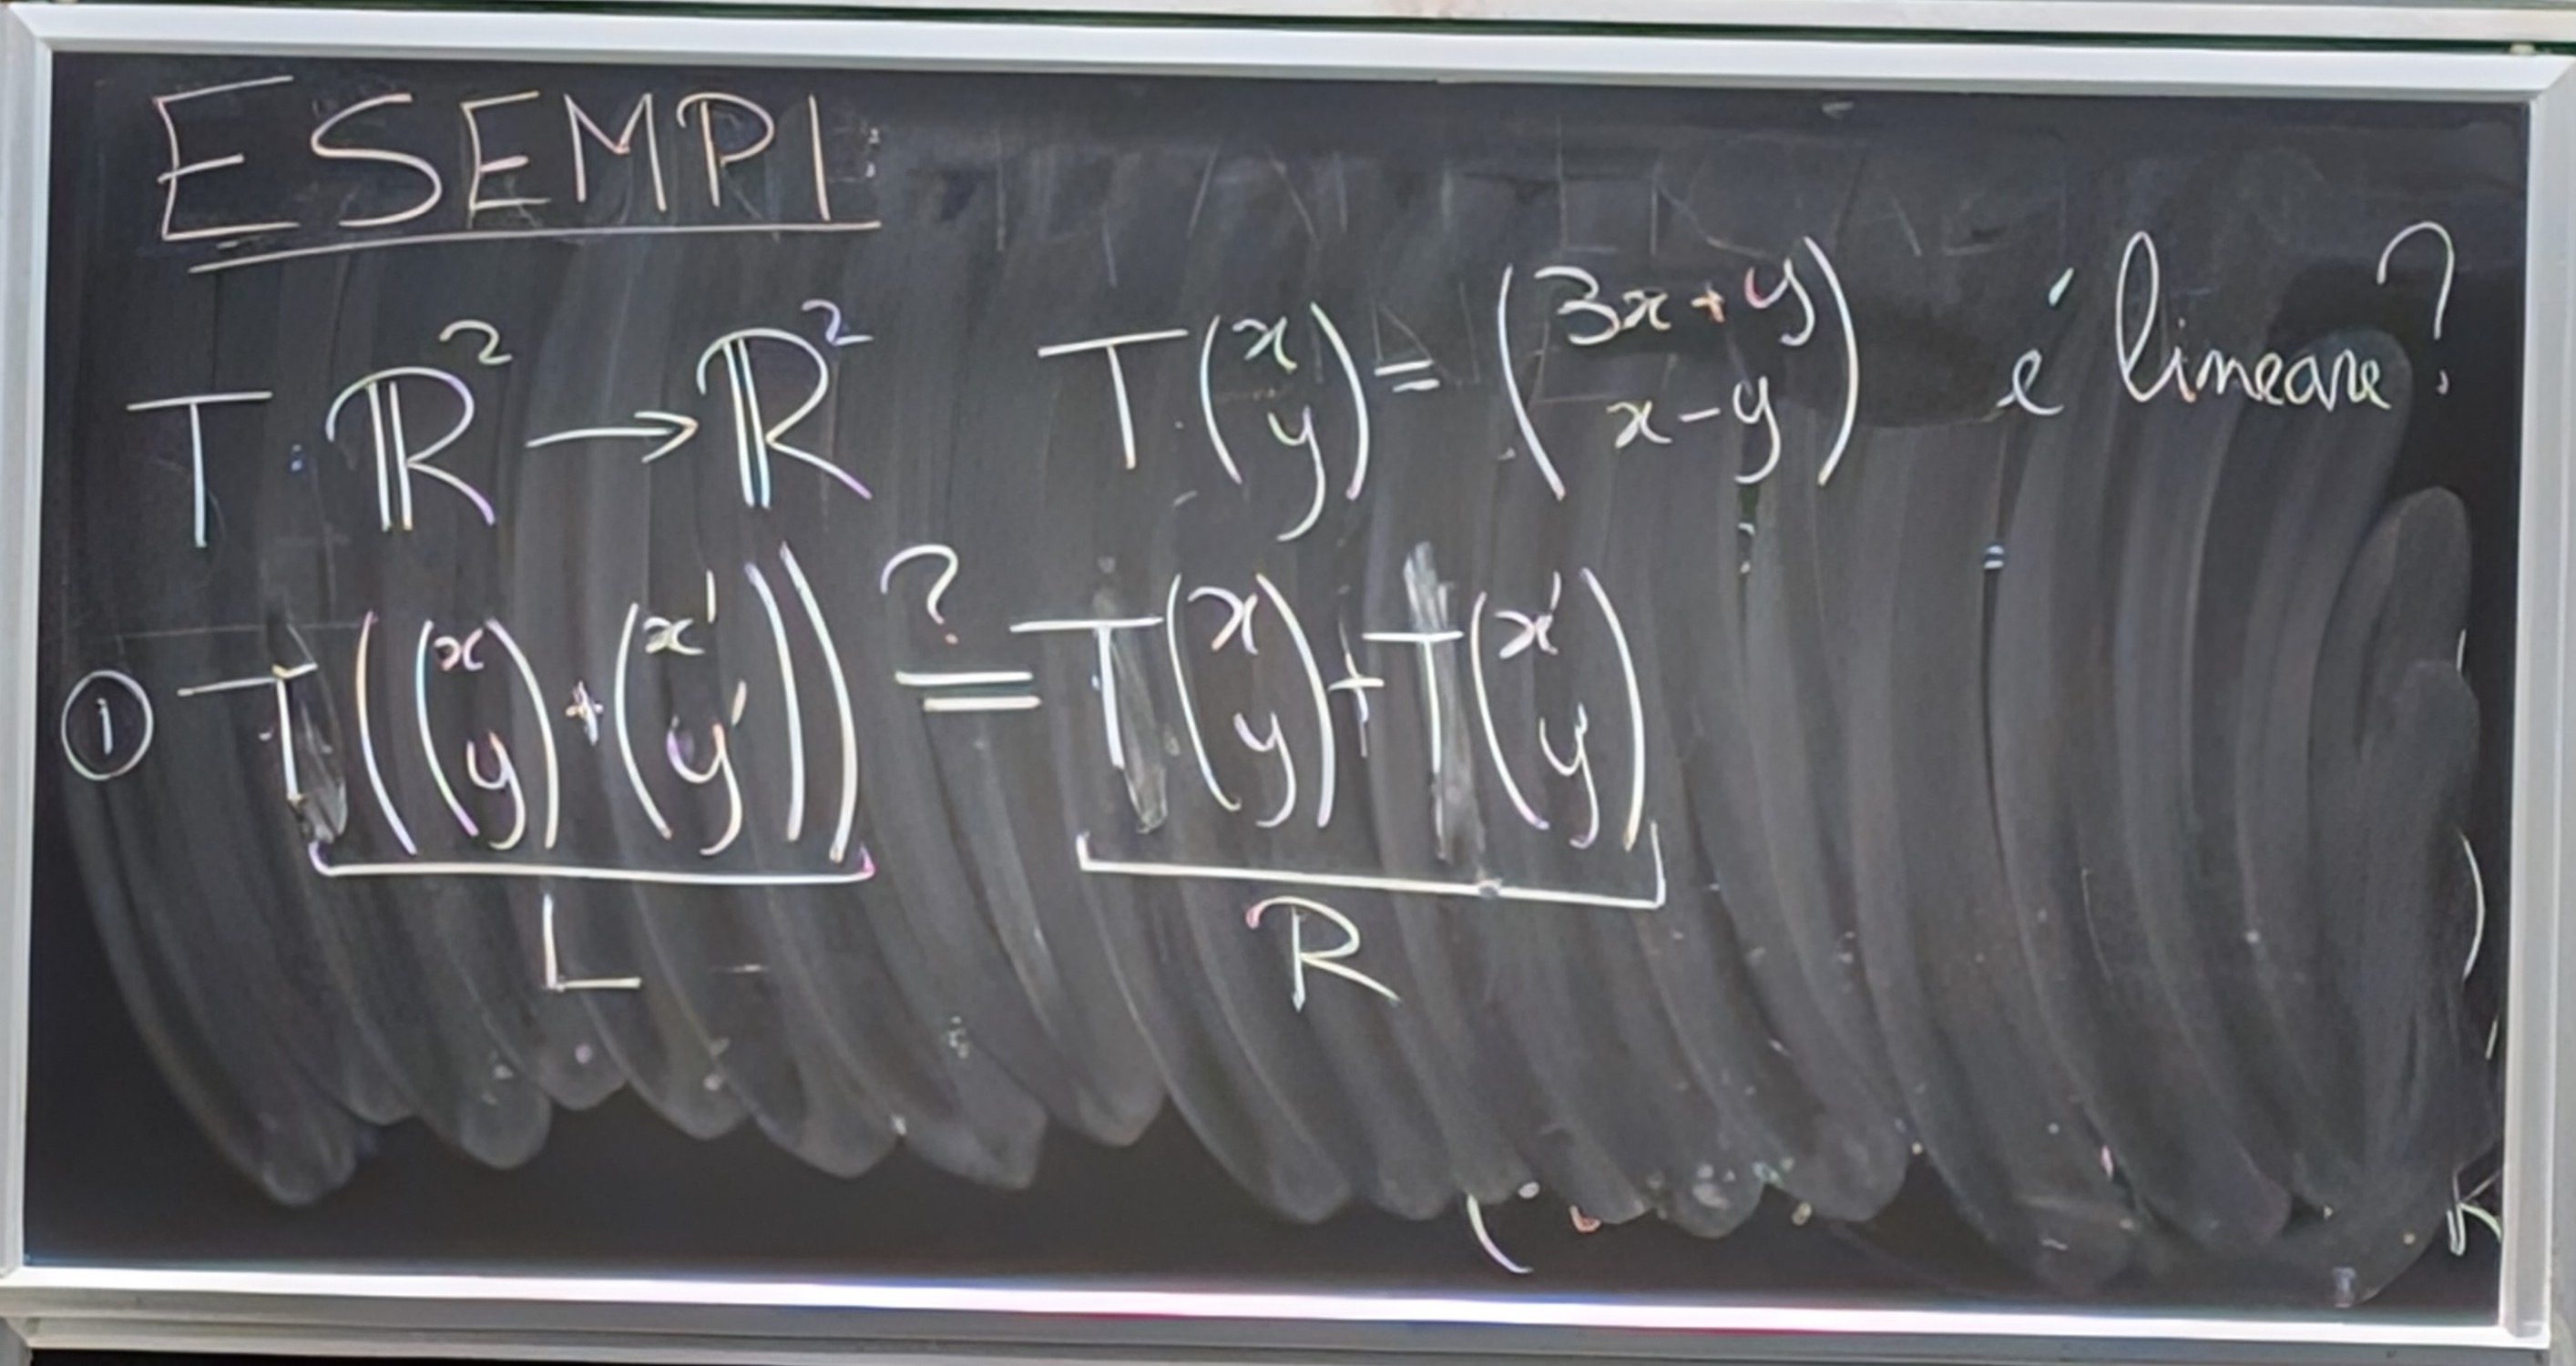 ESEMPI
T: ℝ² → ℝ² T(x y) = (3x+y x-y) é lineare?
① T((x y)+(x' y')) ?= T(x y)+T(x' y)
L R